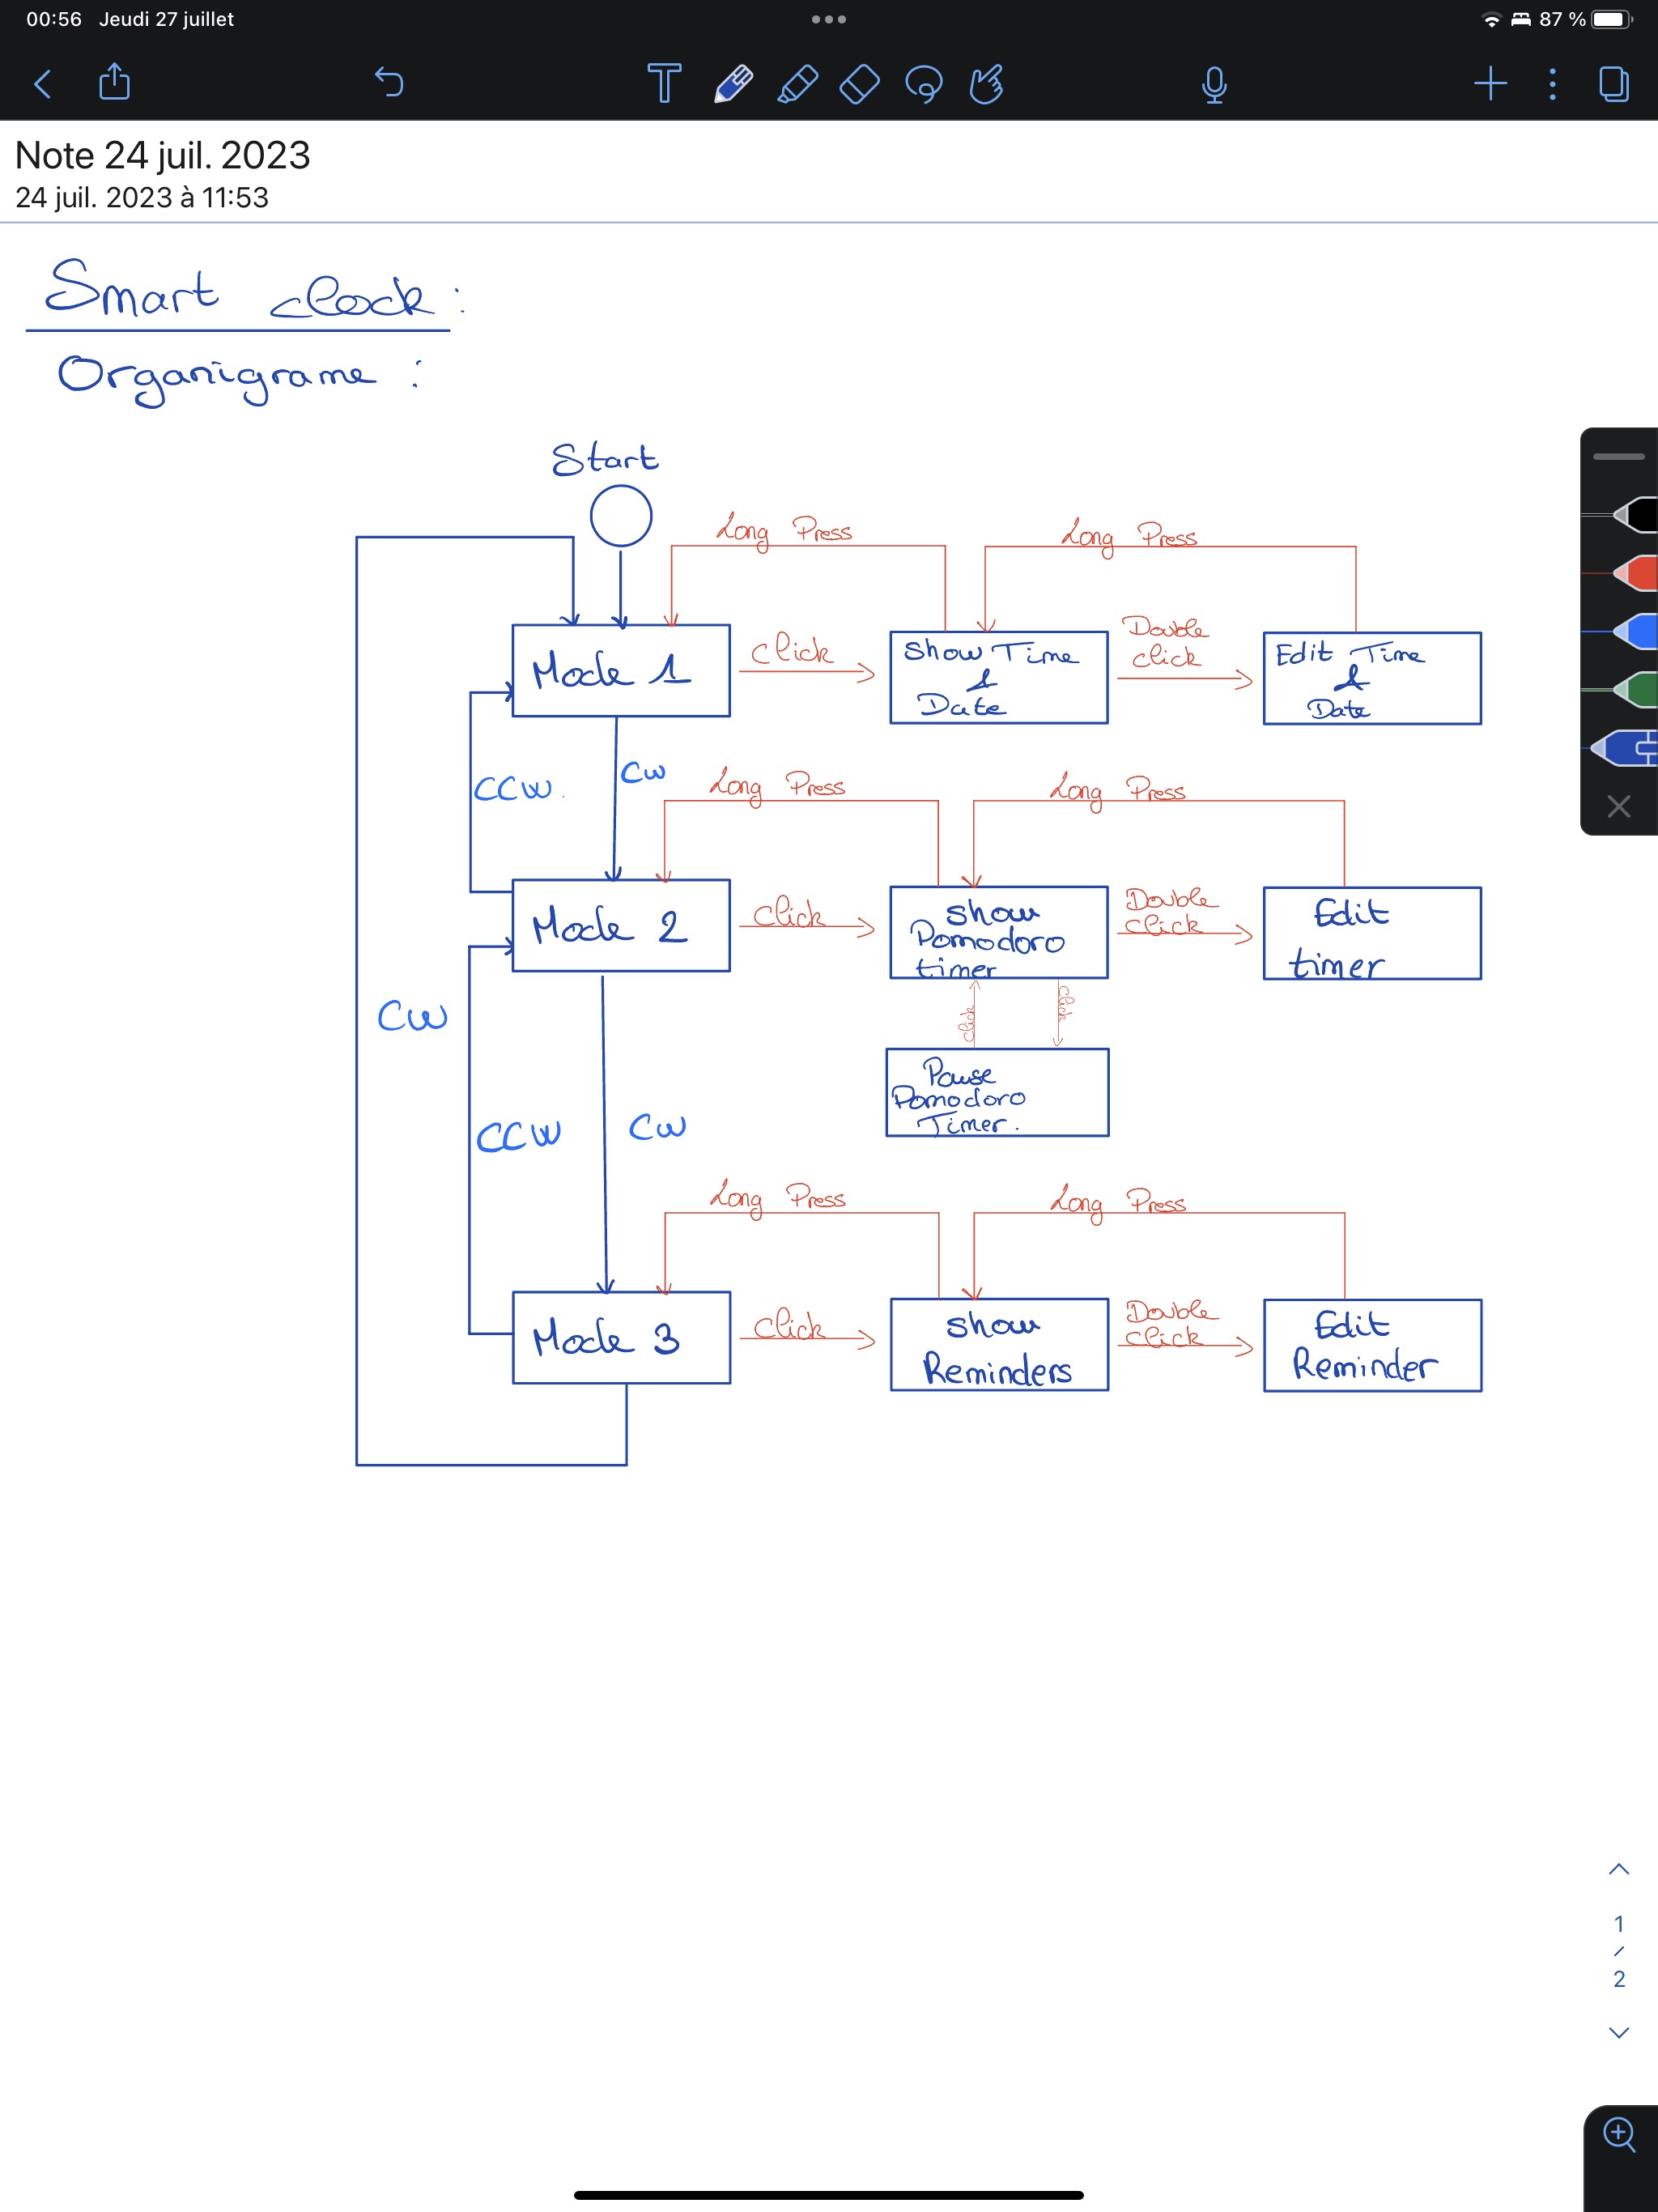 00:56 Jeudi 27 juillet
87 %
Note 24 juil. 2023
24 juil. 2023 à 11:53
Smart clock :
Organigrame :
Start
Long Press
Long Press
Mode 1
click
Show Time
&
Date
Double
click
Edit Time
&
Date
CCW.
CW
Long Press
Long Press
Mode 2
click
show
Pomodoro
timer
Double
click
Edit
timer
CW
click
click
Pause
Pomodoro
Timer.
CCW
CW
Long Press
Long Press
Mode 3
click
show
Reminders
Double
click
Edit
Reminder
1
/
2